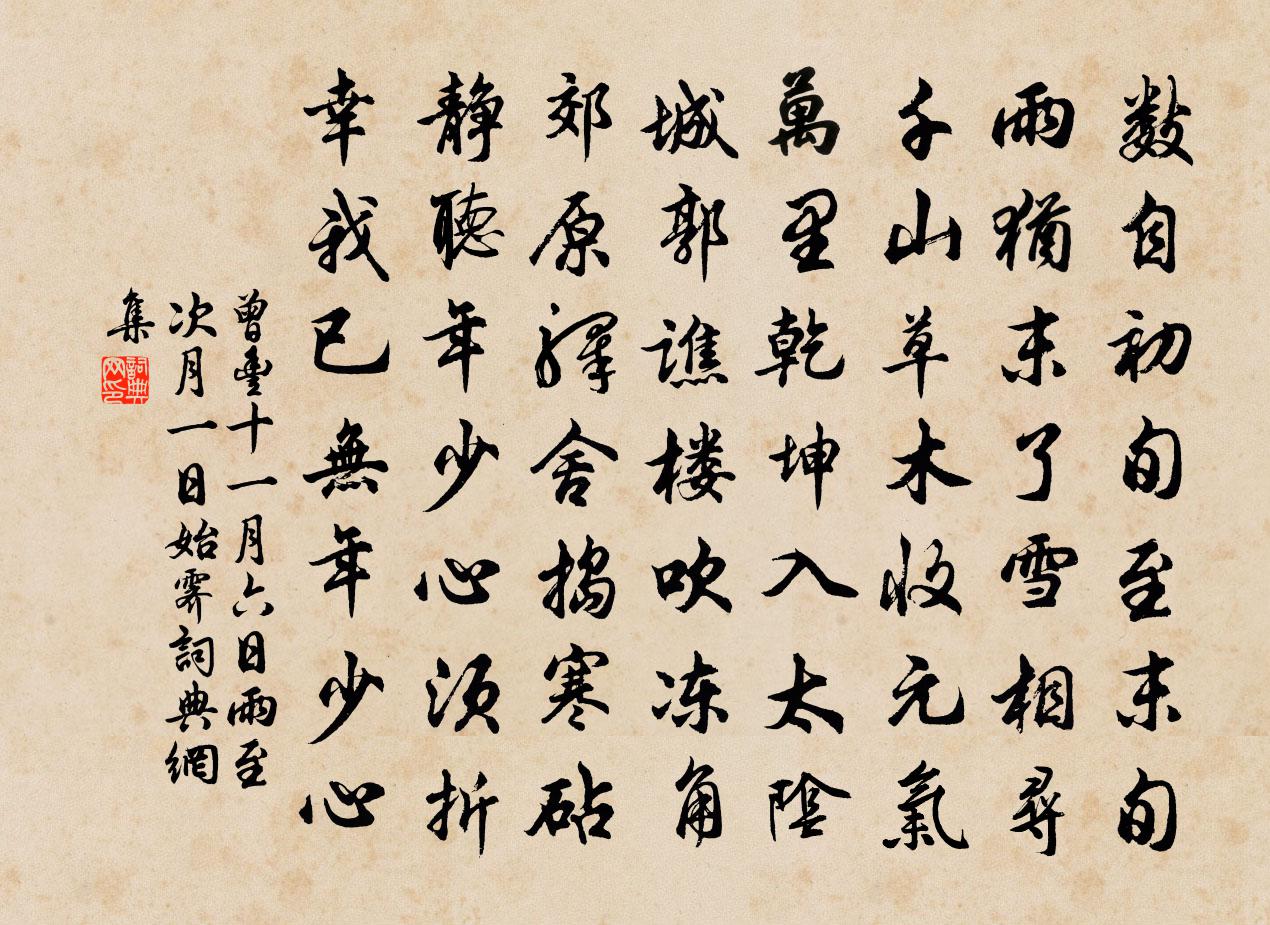 數自初旬至末旬
雨猶未了雪相尋
千山草木收元氣
萬里乾坤入太陰
城郭譙楼吹冻角
郊原驛舍搗寒砧
静聽年少心須折
幸我已無年少心
曾豐十一月六日雨至
次月一日始霽詞典網
集
詞典
网印